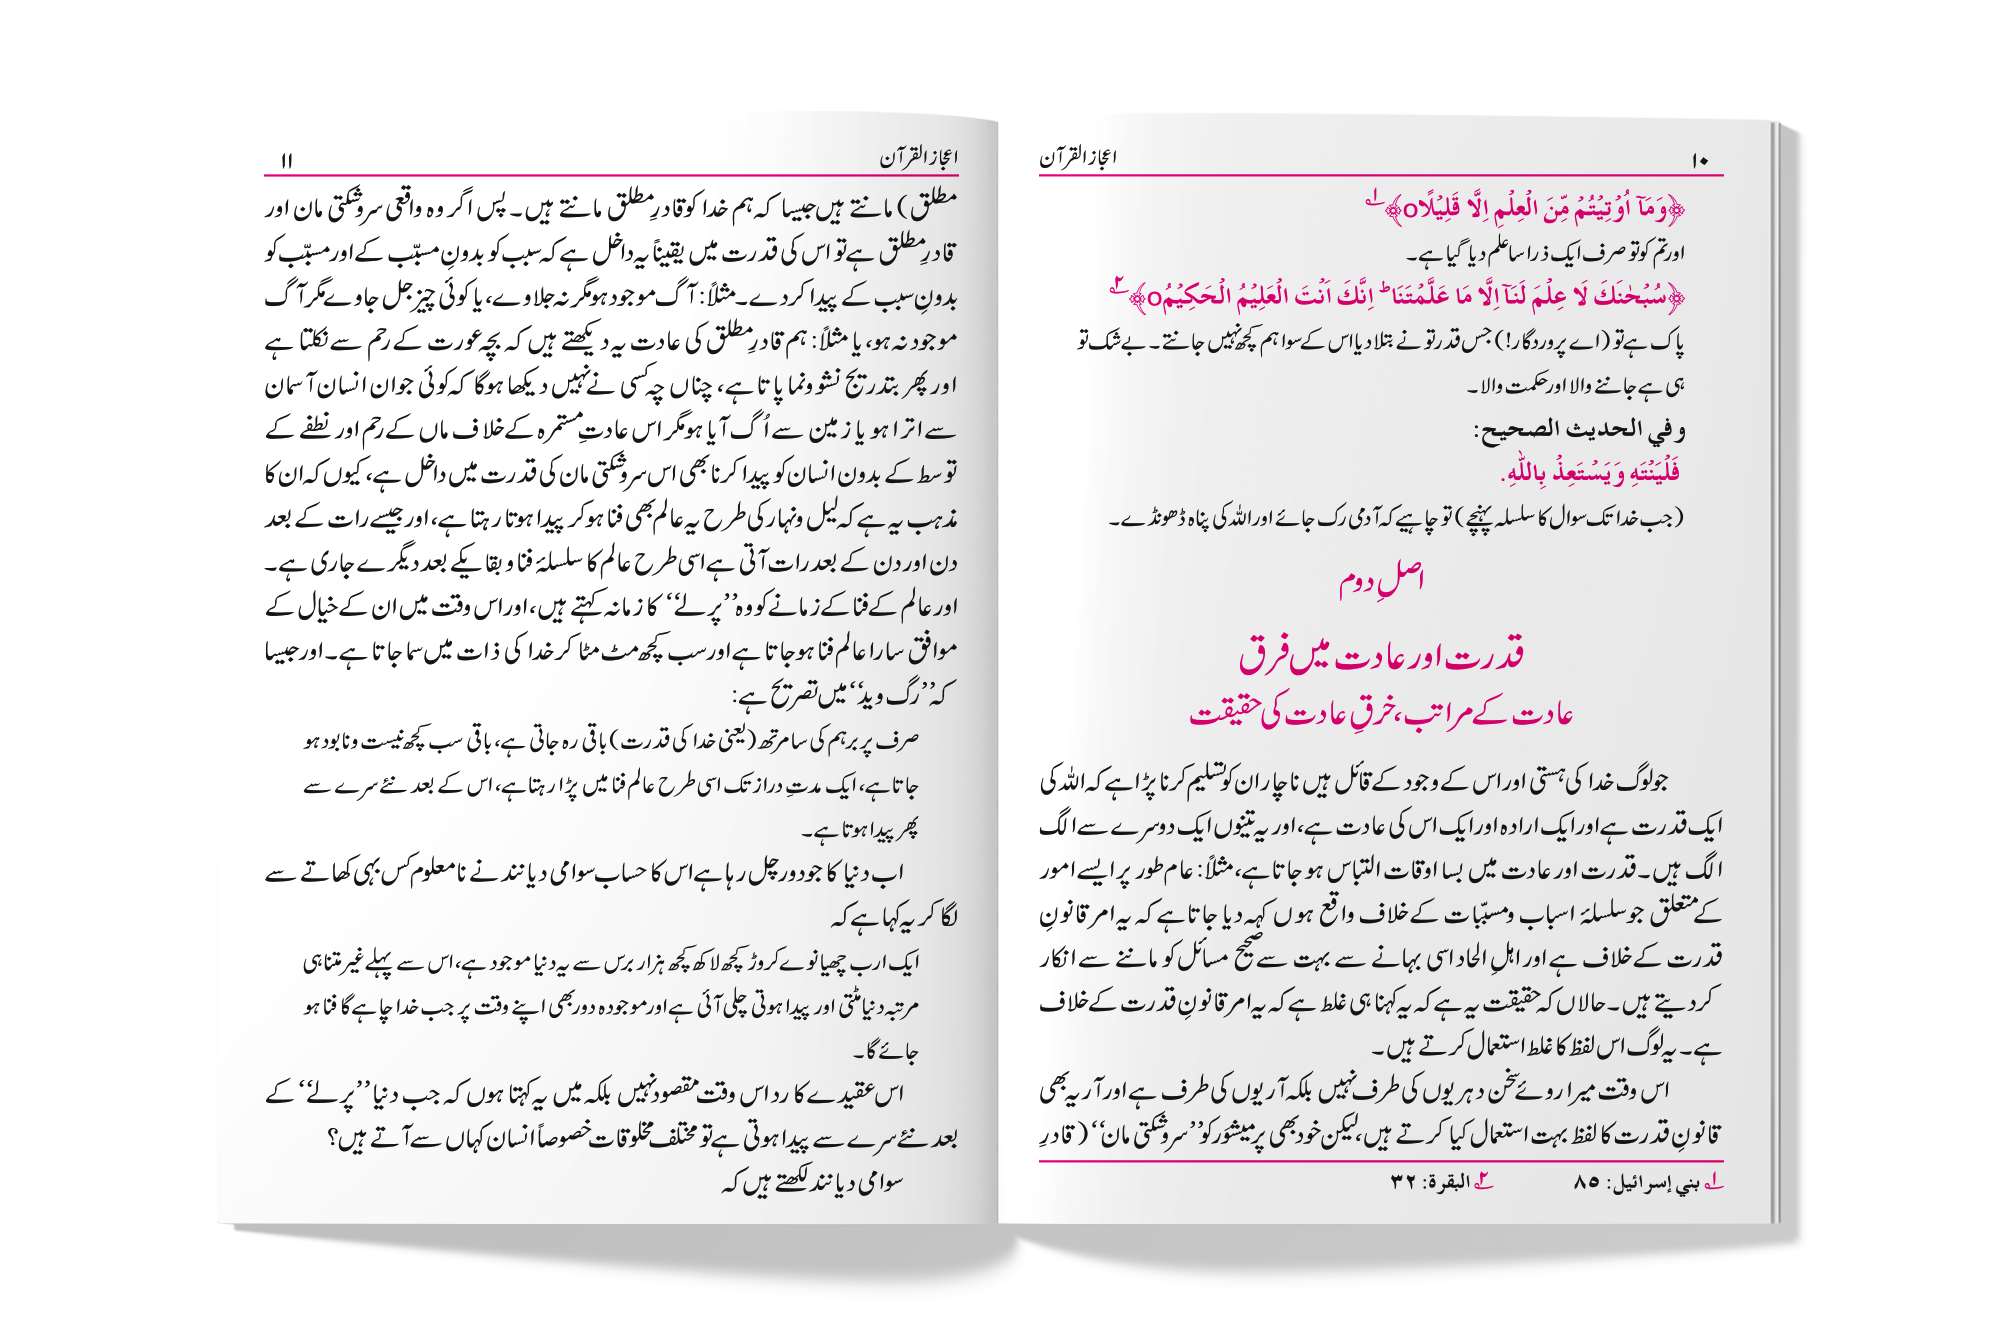 ۱۰ اعجاز القرآن
﴿وَمَآ اُوْتِيْتُمْ مِّنَ الْعِلْمِ اِلَّا قَلِيْلًاo﴾ ۱؎
اور تم کو تو صرف ایک ذرا سا علم دیا گیا ہے۔
﴿سُبْحٰنَكَ لَا عِلْمَ لَنَآ اِلَّا مَا عَلَّمْتَنَا ؕ اِنَّكَ اَنْتَ الْعَلِيْمُ الْحَكِيْمُo﴾ ۲؎
پاک ہے تو (اے پروردگار!) جس قدر تو نے بتلا دیا اس کے سوا ہم کچھ نہیں جانتے۔ بے شک تو
ہی ہے جاننے والا اور حکمت والا۔
وفي الحديث الصحيح:
فَلْيَنْتَهِ وَيَسْتَعِذْ بِاللّٰهِ.
(جب خدا تک سوال کا سلسلہ پہنچے) تو چاہیے کہ آدمی رک جائے اور اللہ کی پناہ ڈھونڈے۔
اصلِ دوم
قدرت اور عادت میں فرق
عادت کے مراتب، خرقِ عادت کی حقیقت
جو لوگ خدا کی ہستی اور اس کے وجود کے قائل ہیں ناچار ان کو تسلیم کرنا پڑا ہے کہ اللہ کی
ایک قدرت ہے اور ایک ارادہ اور ایک اس کی عادت ہے، اور یہ تینوں ایک دوسرے سے الگ
الگ ہیں۔ قدرت اور عادت میں بسا اوقات التباس ہو جاتا ہے، مثلاً: عام طور پر ایسے امور
کے متعلق جو سلسلۂ اسباب و مسبّبات کے خلاف واقع ہوں کہہ دیا جاتا ہے کہ یہ امر قانونِ
قدرت کے خلاف ہے اور اہلِ الحاد اسی بہانے سے بہت سے صحیح مسائل کو ماننے سے انکار
کر دیتے ہیں۔ حالاں کہ حقیقت یہ ہے کہ یہ کہنا ہی غلط ہے کہ یہ امر قانونِ قدرت کے خلاف
ہے۔ یہ لوگ اس لفظ کا غلط استعمال کرتے ہیں۔
اس وقت میرا روئے سخن دہریوں کی طرف نہیں بلکہ آریوں کی طرف ہے اور آریہ بھی
قانونِ قدرت کا لفظ بہت استعمال کیا کرتے ہیں، لیکن خود بھی پرمیشور کو ’’سروشکتی مان‘‘ (قادرِ
۱؎ بني إسرائيل: ۸۵ ۲؎ البقرة: ۳۲
اعجاز القرآن ۱۱
مطلق) مانتے ہیں جیسا کہ ہم خدا کو قادرِ مطلق مانتے ہیں۔ پس اگر وہ واقعی سروشکتی مان اور
قادرِ مطلق ہے تو اس کی قدرت میں یقیناً یہ داخل ہے کہ سبب کو بدونِ مسبّب کے اور مسبّب کو
بدونِ سبب کے پیدا کردے۔ مثلاً: آگ موجود ہو مگر نہ جلاوے، یا کوئی چیز جل جاوے مگر آگ
موجود نہ ہو، یا مثلاً: ہم قادرِ مطلق کی عادت یہ دیکھتے ہیں کہ بچہ عورت کے رحم سے نکلتا ہے
اور پھر بتدریج نشوونما پاتا ہے، چناں چہ کسی نے نہیں دیکھا ہوگا کہ کوئی جوان انسان آسمان
سے اترا ہو یا زمین سے اُگ آیا ہو مگر اس عادتِ مستمرہ کے خلاف ماں کے رحم اور نطفے کے
توسط کے بدون انسان کو پیدا کرنا بھی اس سروشکتی مان کی قدرت میں داخل ہے، کیوں کہ ان کا
مذہب یہ ہے کہ لیل ونہار کی طرح یہ عالم بھی فنا ہو کر پیدا ہوتا رہتا ہے، اور جیسے رات کے بعد
دن اور دن کے بعد رات آتی ہے اسی طرح عالم کا سلسلۂ فنا و بقا یکے بعد دیگرے جاری ہے۔
اور عالم کے فنا کے زمانے کو وہ ’’پرلے‘‘ کا زمانہ کہتے ہیں، اور اس وقت میں ان کے خیال کے
موافق سارا عالم فنا ہو جاتا ہے اور سب کچھ مٹ مٹا کر خدا کی ذات میں سما جاتا ہے۔ اور جیسا
کہ ’’رگ وید‘‘ میں تصریح ہے:
صرف پر برہم کی سامرتھ (یعنی خدا کی قدرت) باقی رہ جاتی ہے، باقی سب کچھ نیست ونابود ہو
جاتا ہے، ایک مدتِ دراز تک اسی طرح عالم فنا میں پڑا رہتا ہے، اس کے بعد نئے سرے سے
پھر پیدا ہوتا ہے۔
اب دنیا کا جو دور چل رہا ہے اس کا حساب سوامی دیانند نے نامعلوم کس بہی کھاتے سے
لگا کر یہ کہا ہے کہ
ایک ارب چھیانوے کروڑ کچھ لاکھ کچھ ہزار برس سے یہ دنیا موجود ہے، اس سے پہلے غیر متناہی
مرتبہ دنیا مٹتی اور پیدا ہوتی چلی آئی ہے اور موجودہ دور بھی اپنے وقت پر جب خدا چاہے گا فنا ہو
جائے گا۔
اس عقیدے کا رد اس وقت مقصود نہیں بلکہ میں یہ کہتا ہوں کہ جب دنیا ’’پرلے‘‘ کے
بعد نئے سرے سے پیدا ہوتی ہے تو مختلف مخلوقات خصوصاً انسان کہاں سے آتے ہیں؟
سوامی دیانند لکھتے ہیں کہ